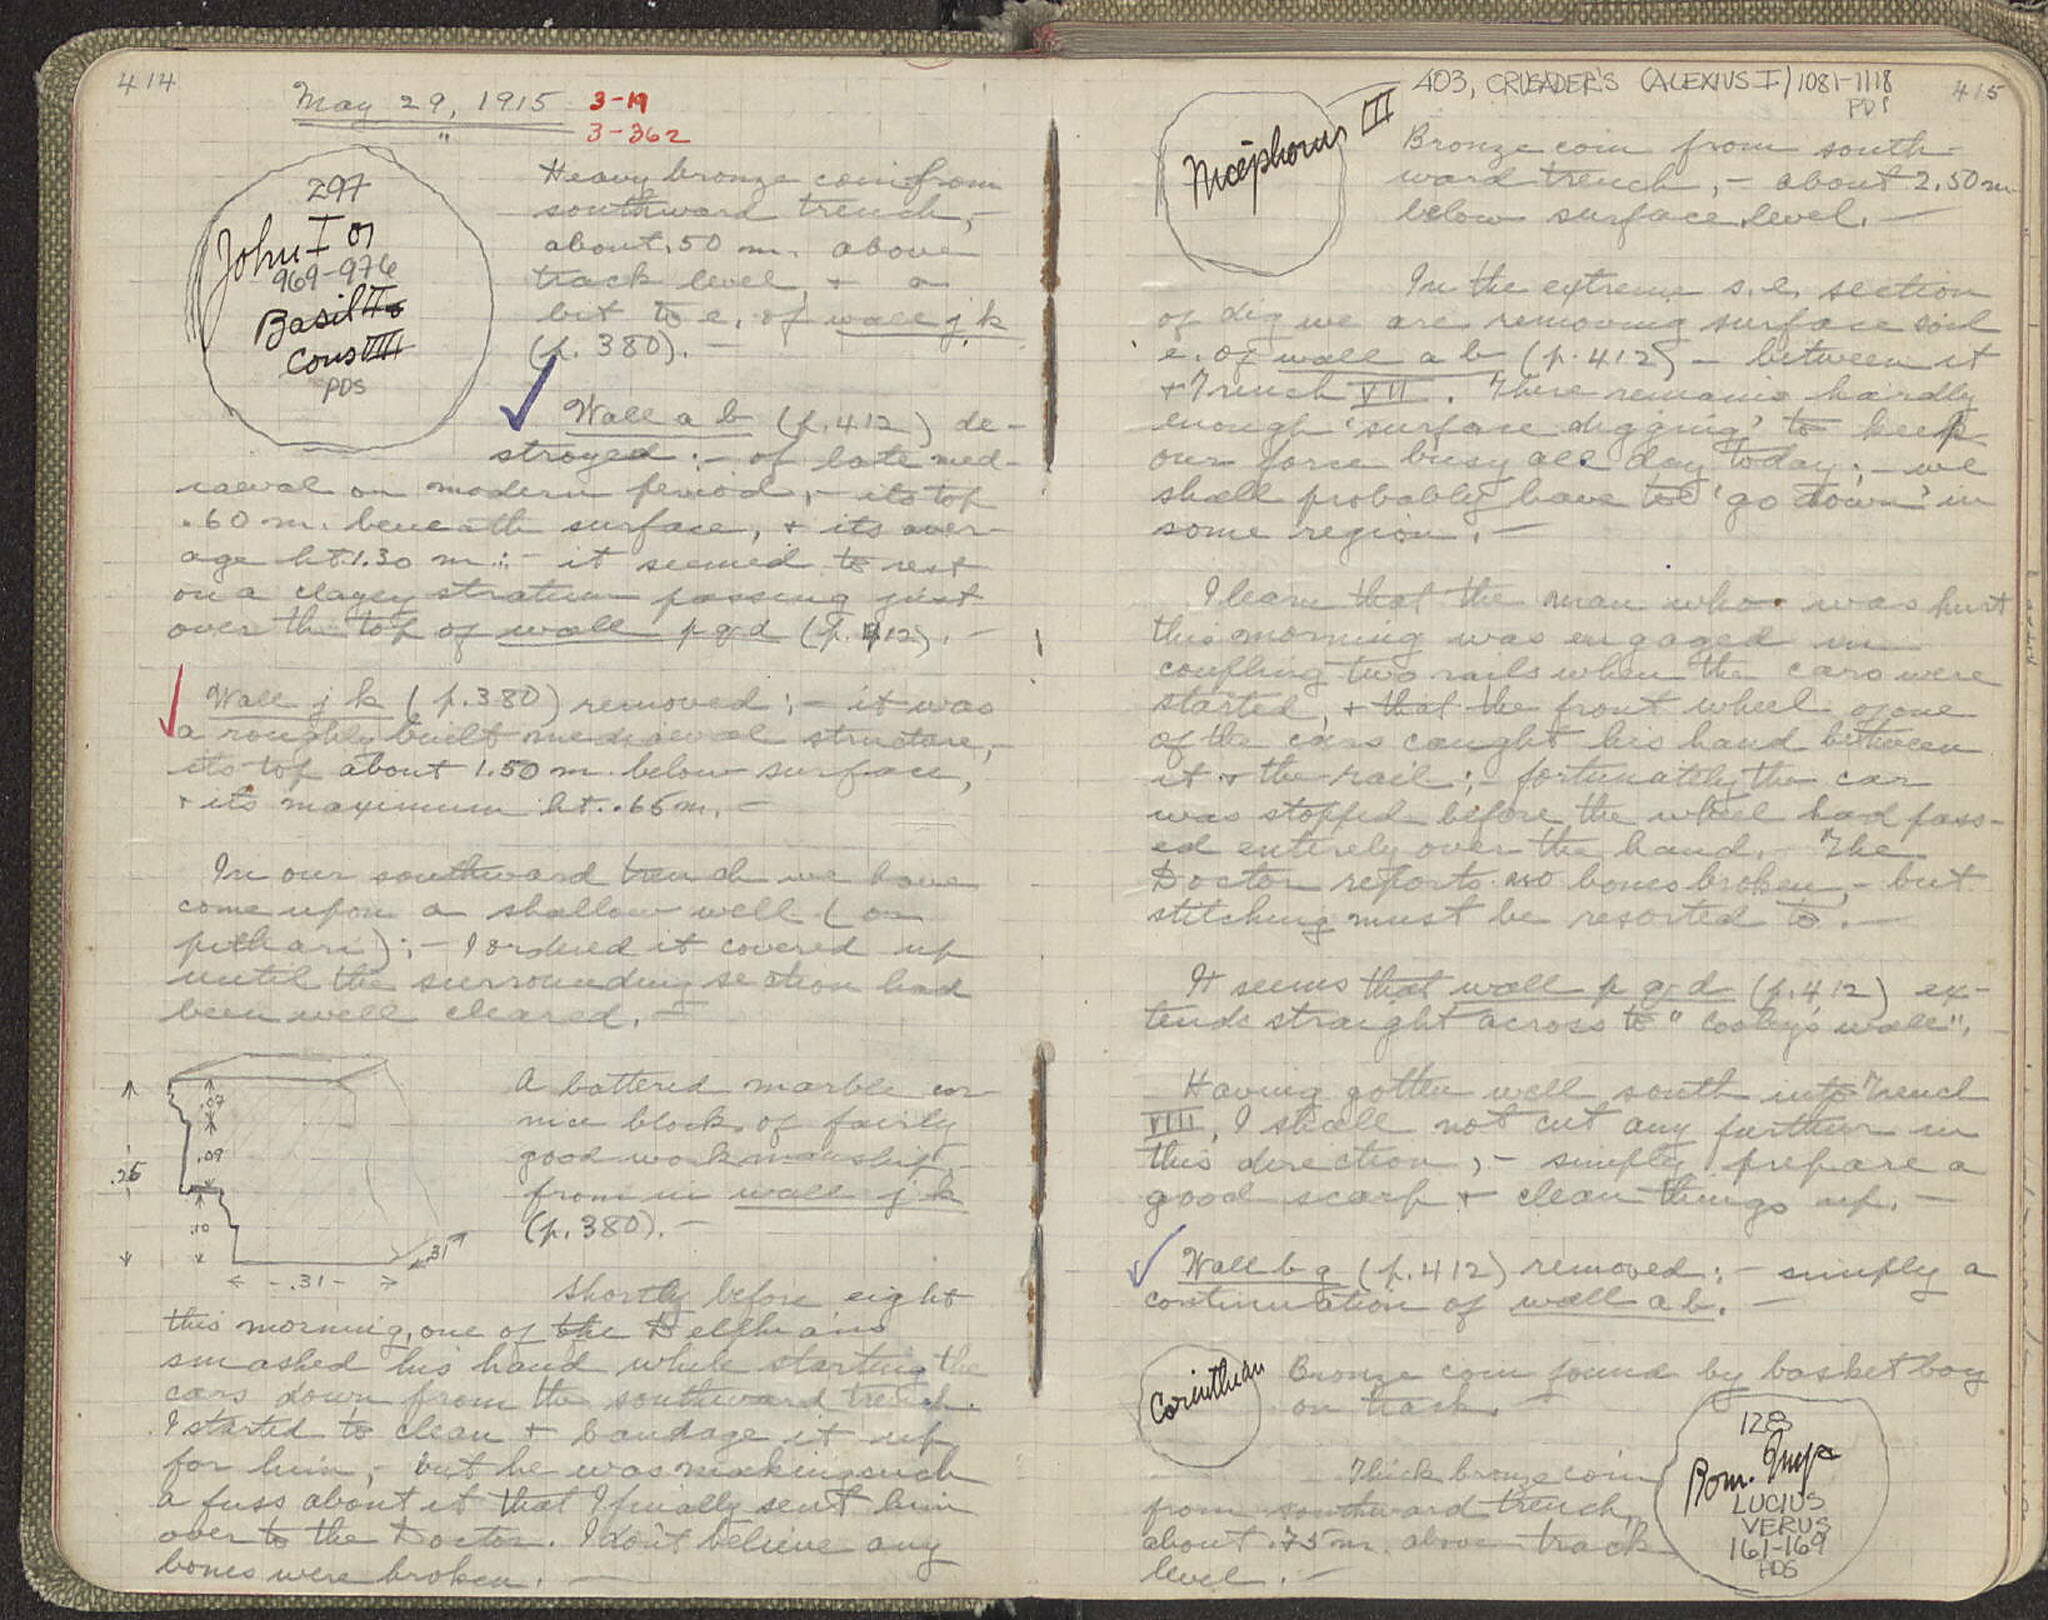 414
May 29, 1915
3-19
3-362
297
John I or
969-976
Basil II &
Cons VIII
PDS
Heavy bronze coin from
southward trench, -
about .50 m. above
track level, + a
bit to e. of wall j k
(p. 380). -
Wall a b (p. 412) de-
stroyed :- of late med-
iaeval or modern period, - its top
.60 m. beneath surface, + its aver-
age ht. 1.30 m. :- it seemed to rest
on a clayey stratum passing just
over the top of wall p q d (p. 412). -
Wall j k (p. 380) removed ; - it was
a roughly built mediaeval structure, -
its top about 1.50 m. below surface,
+ its maximum ht. .65 m. -
In our southward trench we have
come upon a shallow well (or
pithari) ; - I ordered it covered up
until the surrounding section had
been well cleared. -
.07
.09
.26
.10
.31
- .31 -
A battered marble cor-
nice block of fairly
good workmanship, -
from in wall j k
(p. 380). -
Shortly before eight
this morning, one of the Delphians
smashed his hand while starting the
cars down from the southward trench.
I started to clean + bandage it up
for him, - but he was making such
a fuss about it that I finally sent him
over to the Doctor. I don't believe any
bones were broken. -
415
403, CRUSADER'S (ALEXIUS I) 1081-1118
PDS
Nicephorus III
Bronze coin from south-
ward trench, - about 2.50 m
below surface level. -
In the extreme s.e. section
of dig we are removing surface soil
e. of wall a b (p. 412) - between it
+ Trench VII. There remains hardly
enough 'surface digging' to keep
our force busy all day today ; - we
shall probably have to 'go down' in
some region. -
I learn that the man who was hurt
this morning was engaged in
coupling two rails when the cars were
started, + that the front wheel of one
of the cars caught his hand between
it + the rail ; - fortunately the car
was stopped before the wheel had pass-
ed entirely over the hand. The
Doctor reports no bones broken, - but
stitching must be resorted to. -
It seems that wall p q d (p. 412) ex-
tends straight across to "Cooley's wall".
Having gotten well south into Trench
VIII, I shall not cut any further in
this direction, - simply prepare a
good scarp + clean things up. -
Wall b q (p. 412) removed : - simply a
continuation of wall a b. -
Corinthian
Bronze coin found by basket boy
on track. -
Thick bronze coin
from southward trench,
about .75 m. above track
level. -
128
Rom. Imp
LUCIUS
VERUS
161-169
PDS